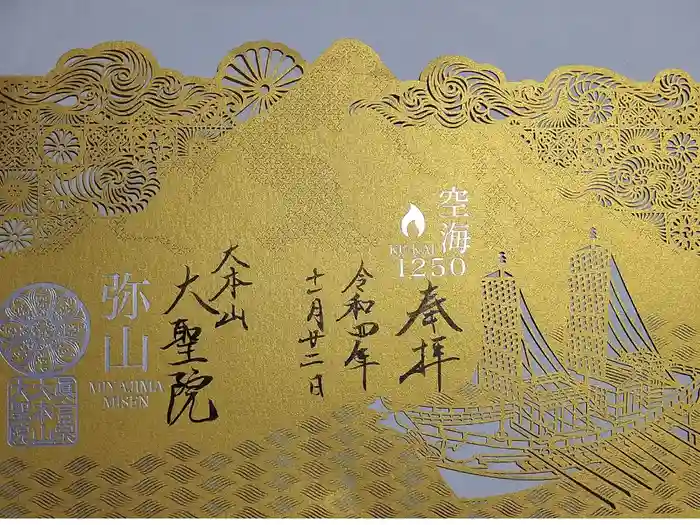 空海
KUKAI
1250
奉拝
令和四年
十一月廿二日
大本山
大聖院
弥山
MIYAJIMA
MISEN
真言宗
大本山
大聖院